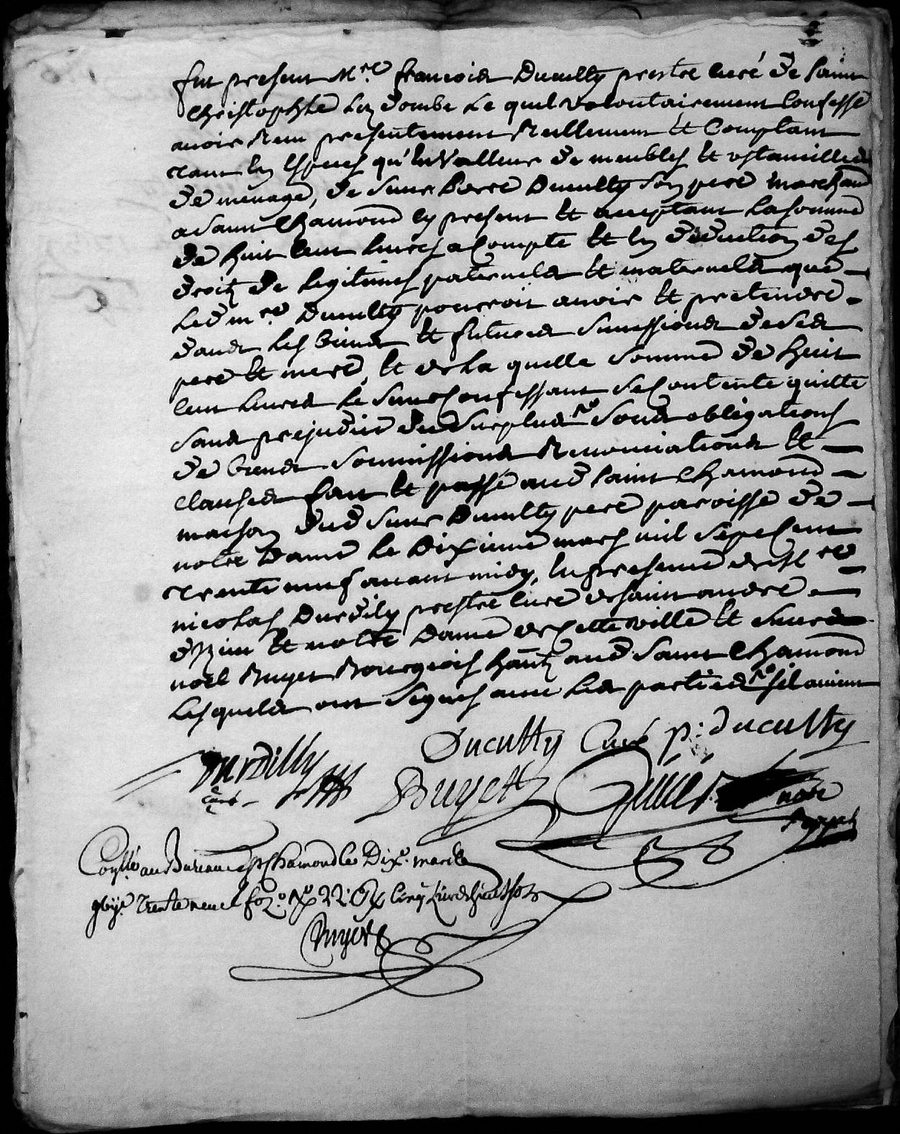 fut present Mre francois Ducully prestre curé de saint
Christophle En Dombe Le quel volontairement Confesse
avoir Reçu presentement Reellement Et Comptant
tant En Especes qu'En Valleur de meubles Et Ustancilles
de ménage, de sieur Pierre Ducully son pere marchand
a Saint Chamond Cy present Et acceptant La somme
de huit Cent Livres a Compte Et En deduction des
droits de Legitimes paternels Et maternels que
Led mre Ducully pourroit avoir Et pretendre
dans Les biens Et futures successions de ses
pere Et mere, Et de La quelle somme de huit
Cent Livres Le sieur Confessant se Contente quitte
sans prejudice du surplus Sous obligations
de biens soumissions Renonciations Et
Clauses fait Et passé aud Saint Chamond
maison dud sieur Ducully pere paroisse de
notre Dame Le Dixieme mars mil sept cent
trente neuf avant midy, En presence de Mre
nicolas Durdilly prestre Curé de saint andré
Et notre Dame de Cette ville Et sieur
noel Buyet Bourgeois habitt aud Saint Chamond
Lesquels ont signés avec Les parties
Durdilly Ducully Curé p: ducully
curé Buyet nore
Royal
Conllé au Bureau de St Chamond le Dixe mars
trente neuf fo 22 Cinq Livres huit sols